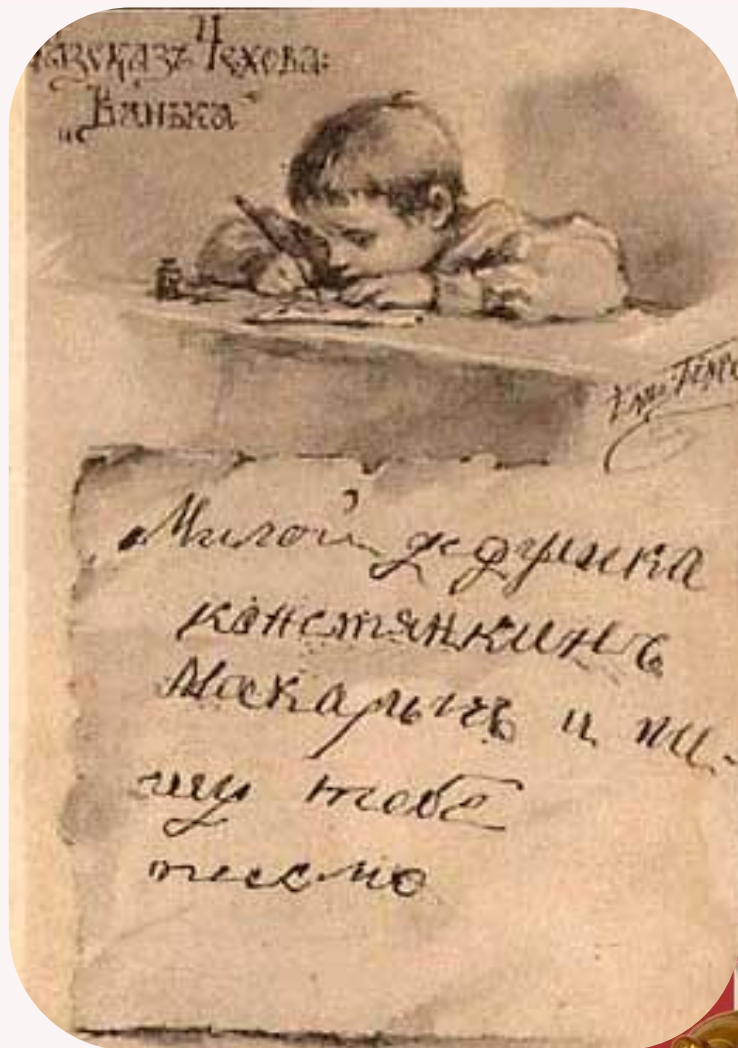 Разсказъ Чехова:
„Ванька“
„Милой дедушка
констянкинъ
Маскарычъ и пи-
шу тебе
письмо